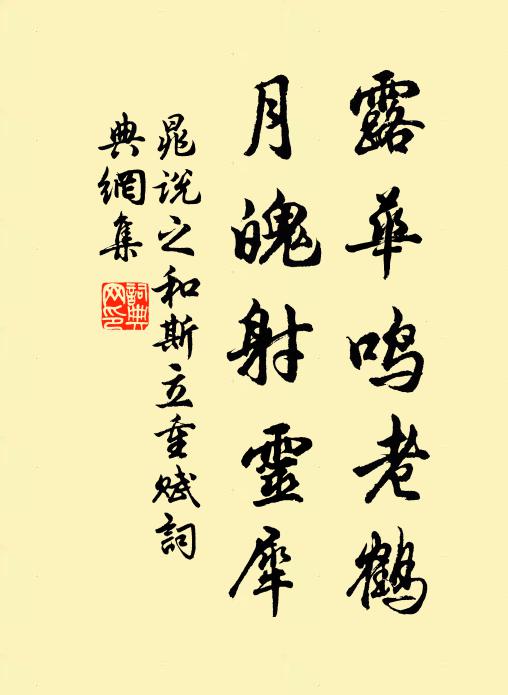 露華鳴老鶴
月魄射靈犀
晁說之和斯立重賦詞
典網集
詞典網印